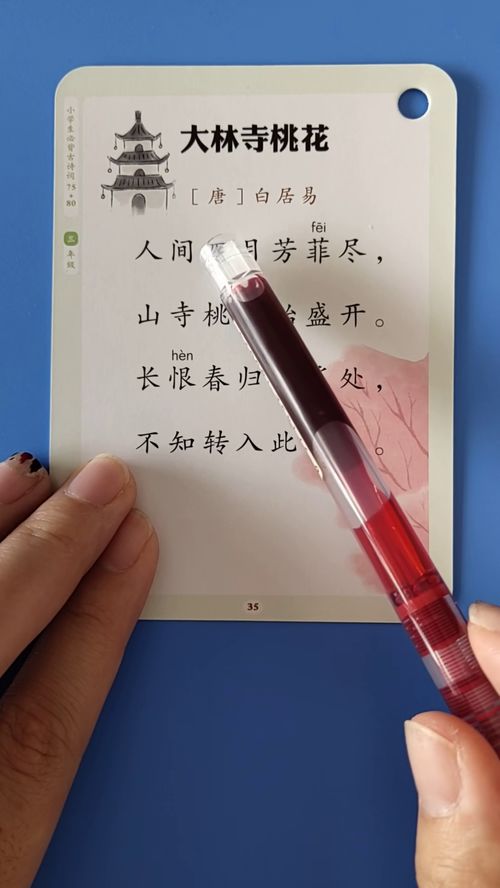 小学生必背古诗词75+80
三年级
大林寺桃花
[唐]白居易
fēi
人间 月芳菲尽，
山寺桃 始盛开。
hèn
长恨春归 处，
不知转入此 。
35